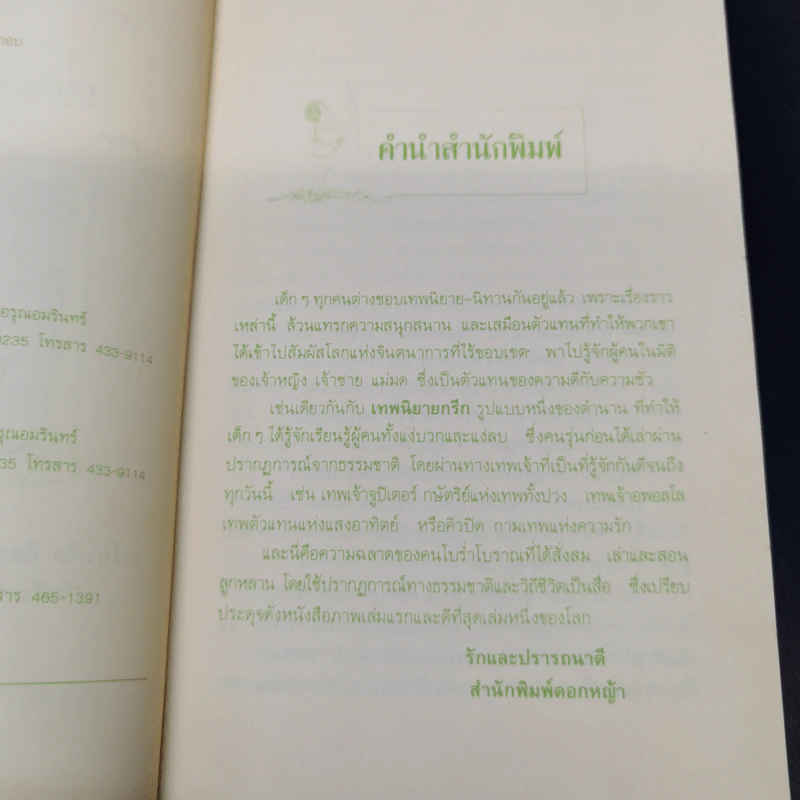 อรุณอมรินทร์
0235 โทรสาร 433-9114
รุณอมรินทร์
35 โทรสาร 433-9114
สาร 465-1391
คำนำสำนักพิมพ์
เด็ก ๆ ทุกคนต่างชอบเทพนิยาย-นิทานกันอยู่แล้ว เพราะเรื่องราว
เหล่านี้ ล้วนแทรกความสนุกสนาน และเสมือนตัวแทนที่ทำให้พวกเขา
ได้เข้าไปสัมผัสโลกแห่งจินตนาการที่ไร้ขอบเขต พาไปรู้จักผู้คนในมิติ
ของเจ้าหญิง เจ้าชาย แม่มด ซึ่งเป็นตัวแทนของความดีกับความชั่ว
เช่นเดียวกันกับ เทพนิยายกรีก รูปแบบหนึ่งของตำนาน ที่ทำให้
เด็ก ๆ ได้รู้จักเรียนรู้ผู้คนทั้งแง่บวกและแง่ลบ ซึ่งคนรุ่นก่อนได้เล่าผ่าน
ปรากฏการณ์จากธรรมชาติ โดยผ่านทางเทพเจ้าที่เป็นที่รู้จักกันดีจนถึง
ทุกวันนี้ เช่น เทพเจ้าจูปิเตอร์ กษัตริย์แห่งเทพทั้งปวง เทพเจ้าอพอลโล
เทพตัวแทนแห่งแสงอาทิตย์ หรือคิวปิด กามเทพแห่งความรัก
และนี่คือความฉลาดของคนโบร่ำโบราณที่ได้สั่งสม เล่าและสอน
ลูกหลาน โดยใช้ปรากฏการณ์ทางธรรมชาติและวิถีชีวิตเป็นสื่อ ซึ่งเปรียบ
ประดุจดั่งหนังสือภาพเล่มแรกและดีที่สุดเล่มหนึ่งของโลก
รักและปรารถนาดี
สำนักพิมพ์ดอกหญ้า